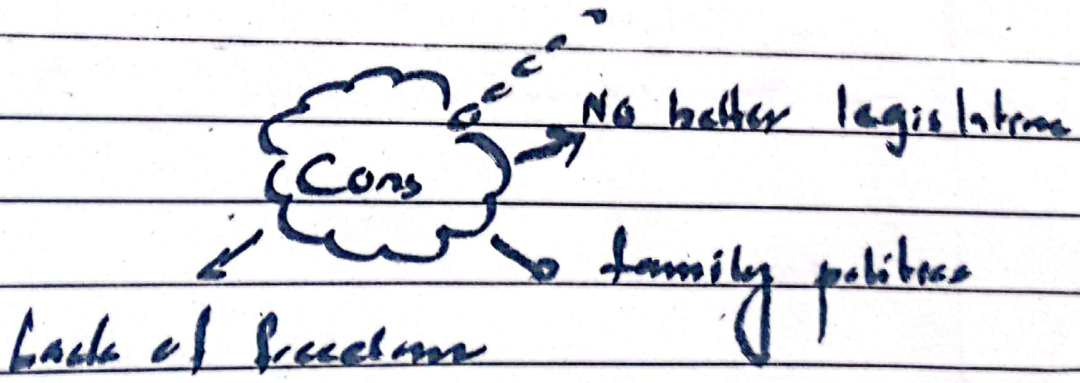 No better legislation
Cons
family politics
Lack of freedom